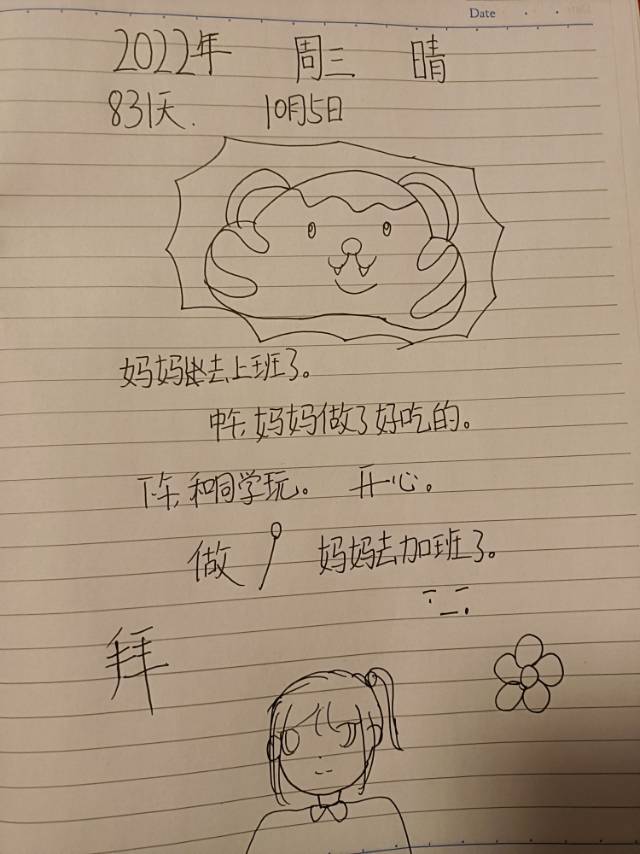 Date
2022年 周三 晴
831天. 10月5日
妈妈出去上班了。
中午,妈妈做了好吃的。
下午,和同学玩。 开心。
做 妈妈去加班了。
拜